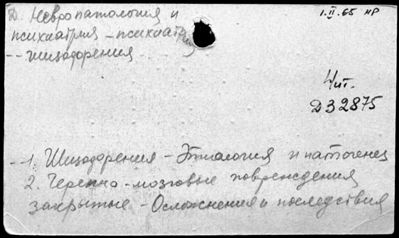 Д. Невропатология и 1.II.65 НР
психиатрия - психиатрия
-- шизофрения
Чит.
Д32875
-- 1. Шизофрения - Этиология и патогенез
2. Черепно-мозговые повреждения
закрытые - Осложнения и последствия